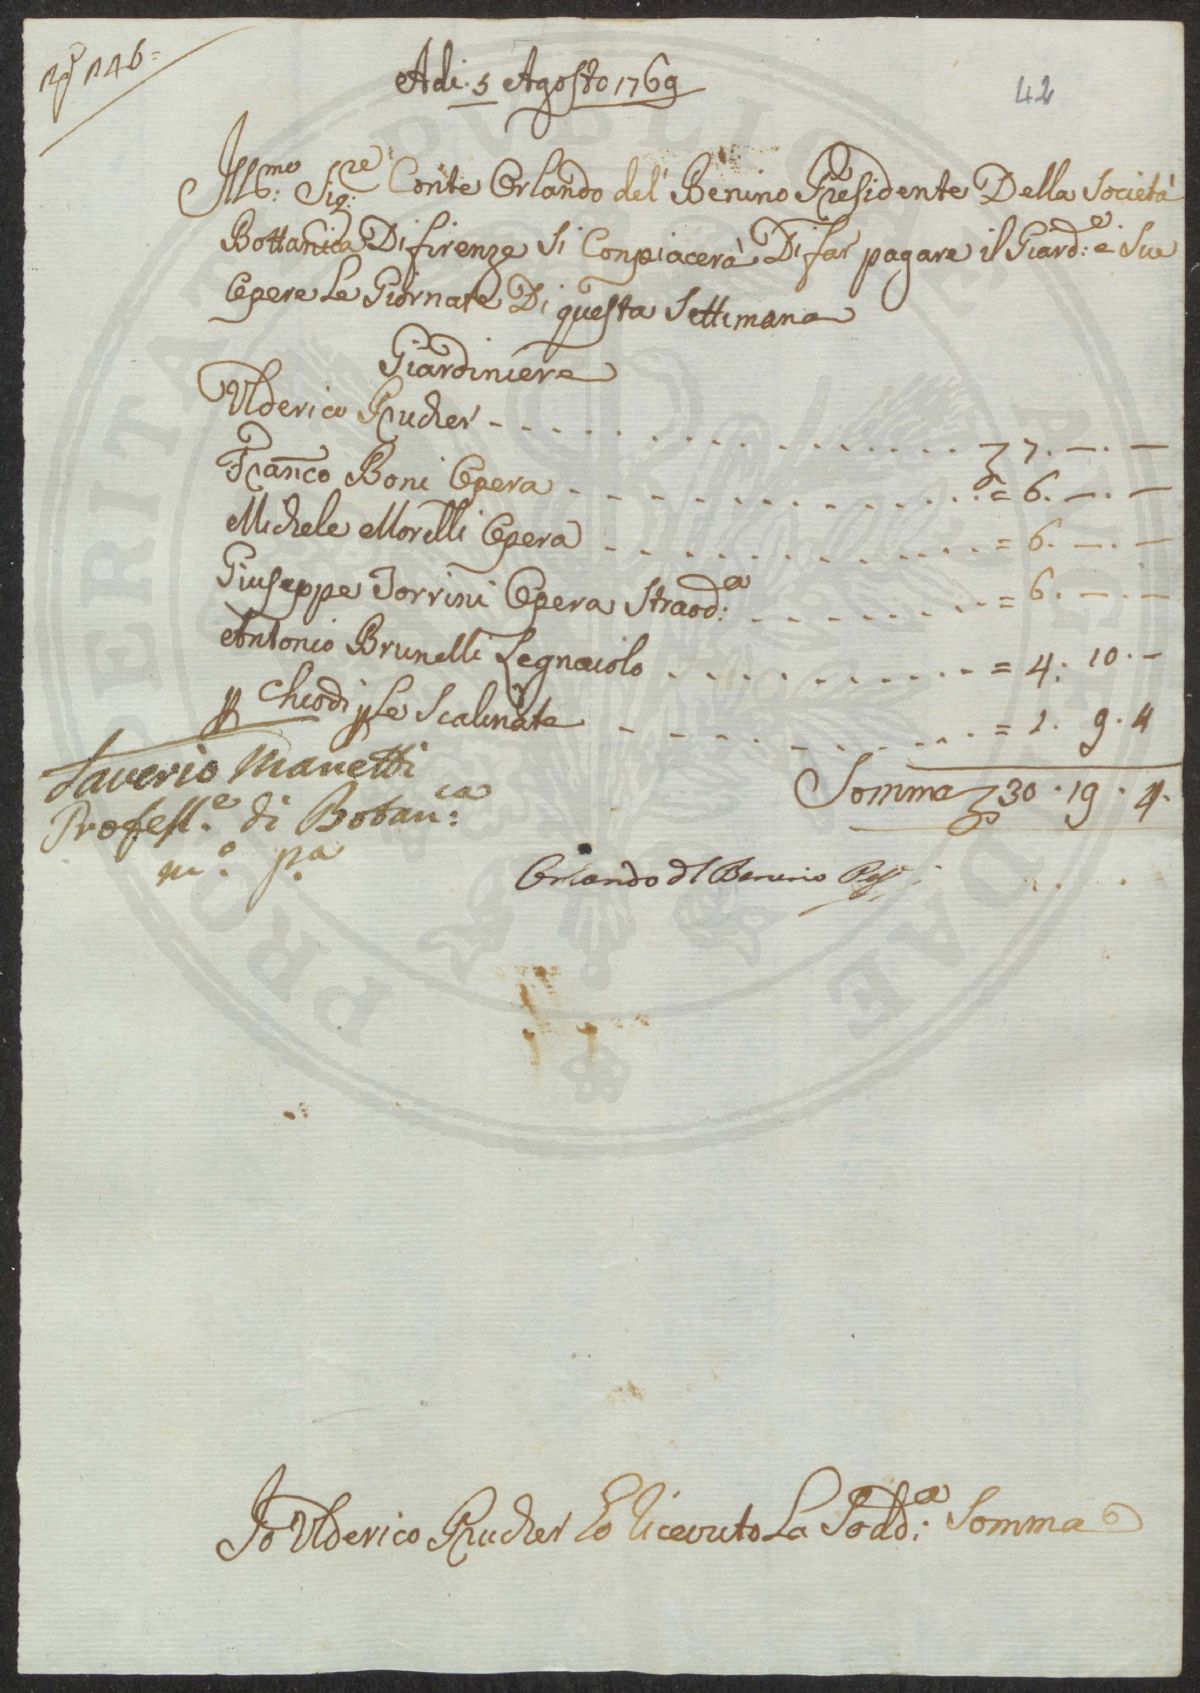 N.º 146=
Adi. 5 Agosto 1769
42
Ill.mo Sig.re Conte Orlando del' Benino Presidente Della Società
Bottanica Di firenze Si Conpiacerà Di far pagare il Giard:e e Sue
Opere Le Giornate Di questa Settimana
Giardiniere
Ulderico Prucher - - - 7. —. —
Franco Boni Opera - - - = 6. —. —
Michele Morelli Opera - - - = 6. —. —
Giuseppe Torrini Opera Straod:a - - - = 6. —. —
Antonio Brunelli Legnaiolo - - - = 4. 10. —
p Chiodi p Le Scalinate - - - = 1. 9. 4
Saverio Manetti
Profess.e di Botan:ca
m.o p.a
Somma 30. 19. 4.
Orlando del Benino Pres.e
Io Ulderico Prucher ho ricevuto La Sodd:a Somma
PROSPERITATI PUBLICAE AUGENDAE